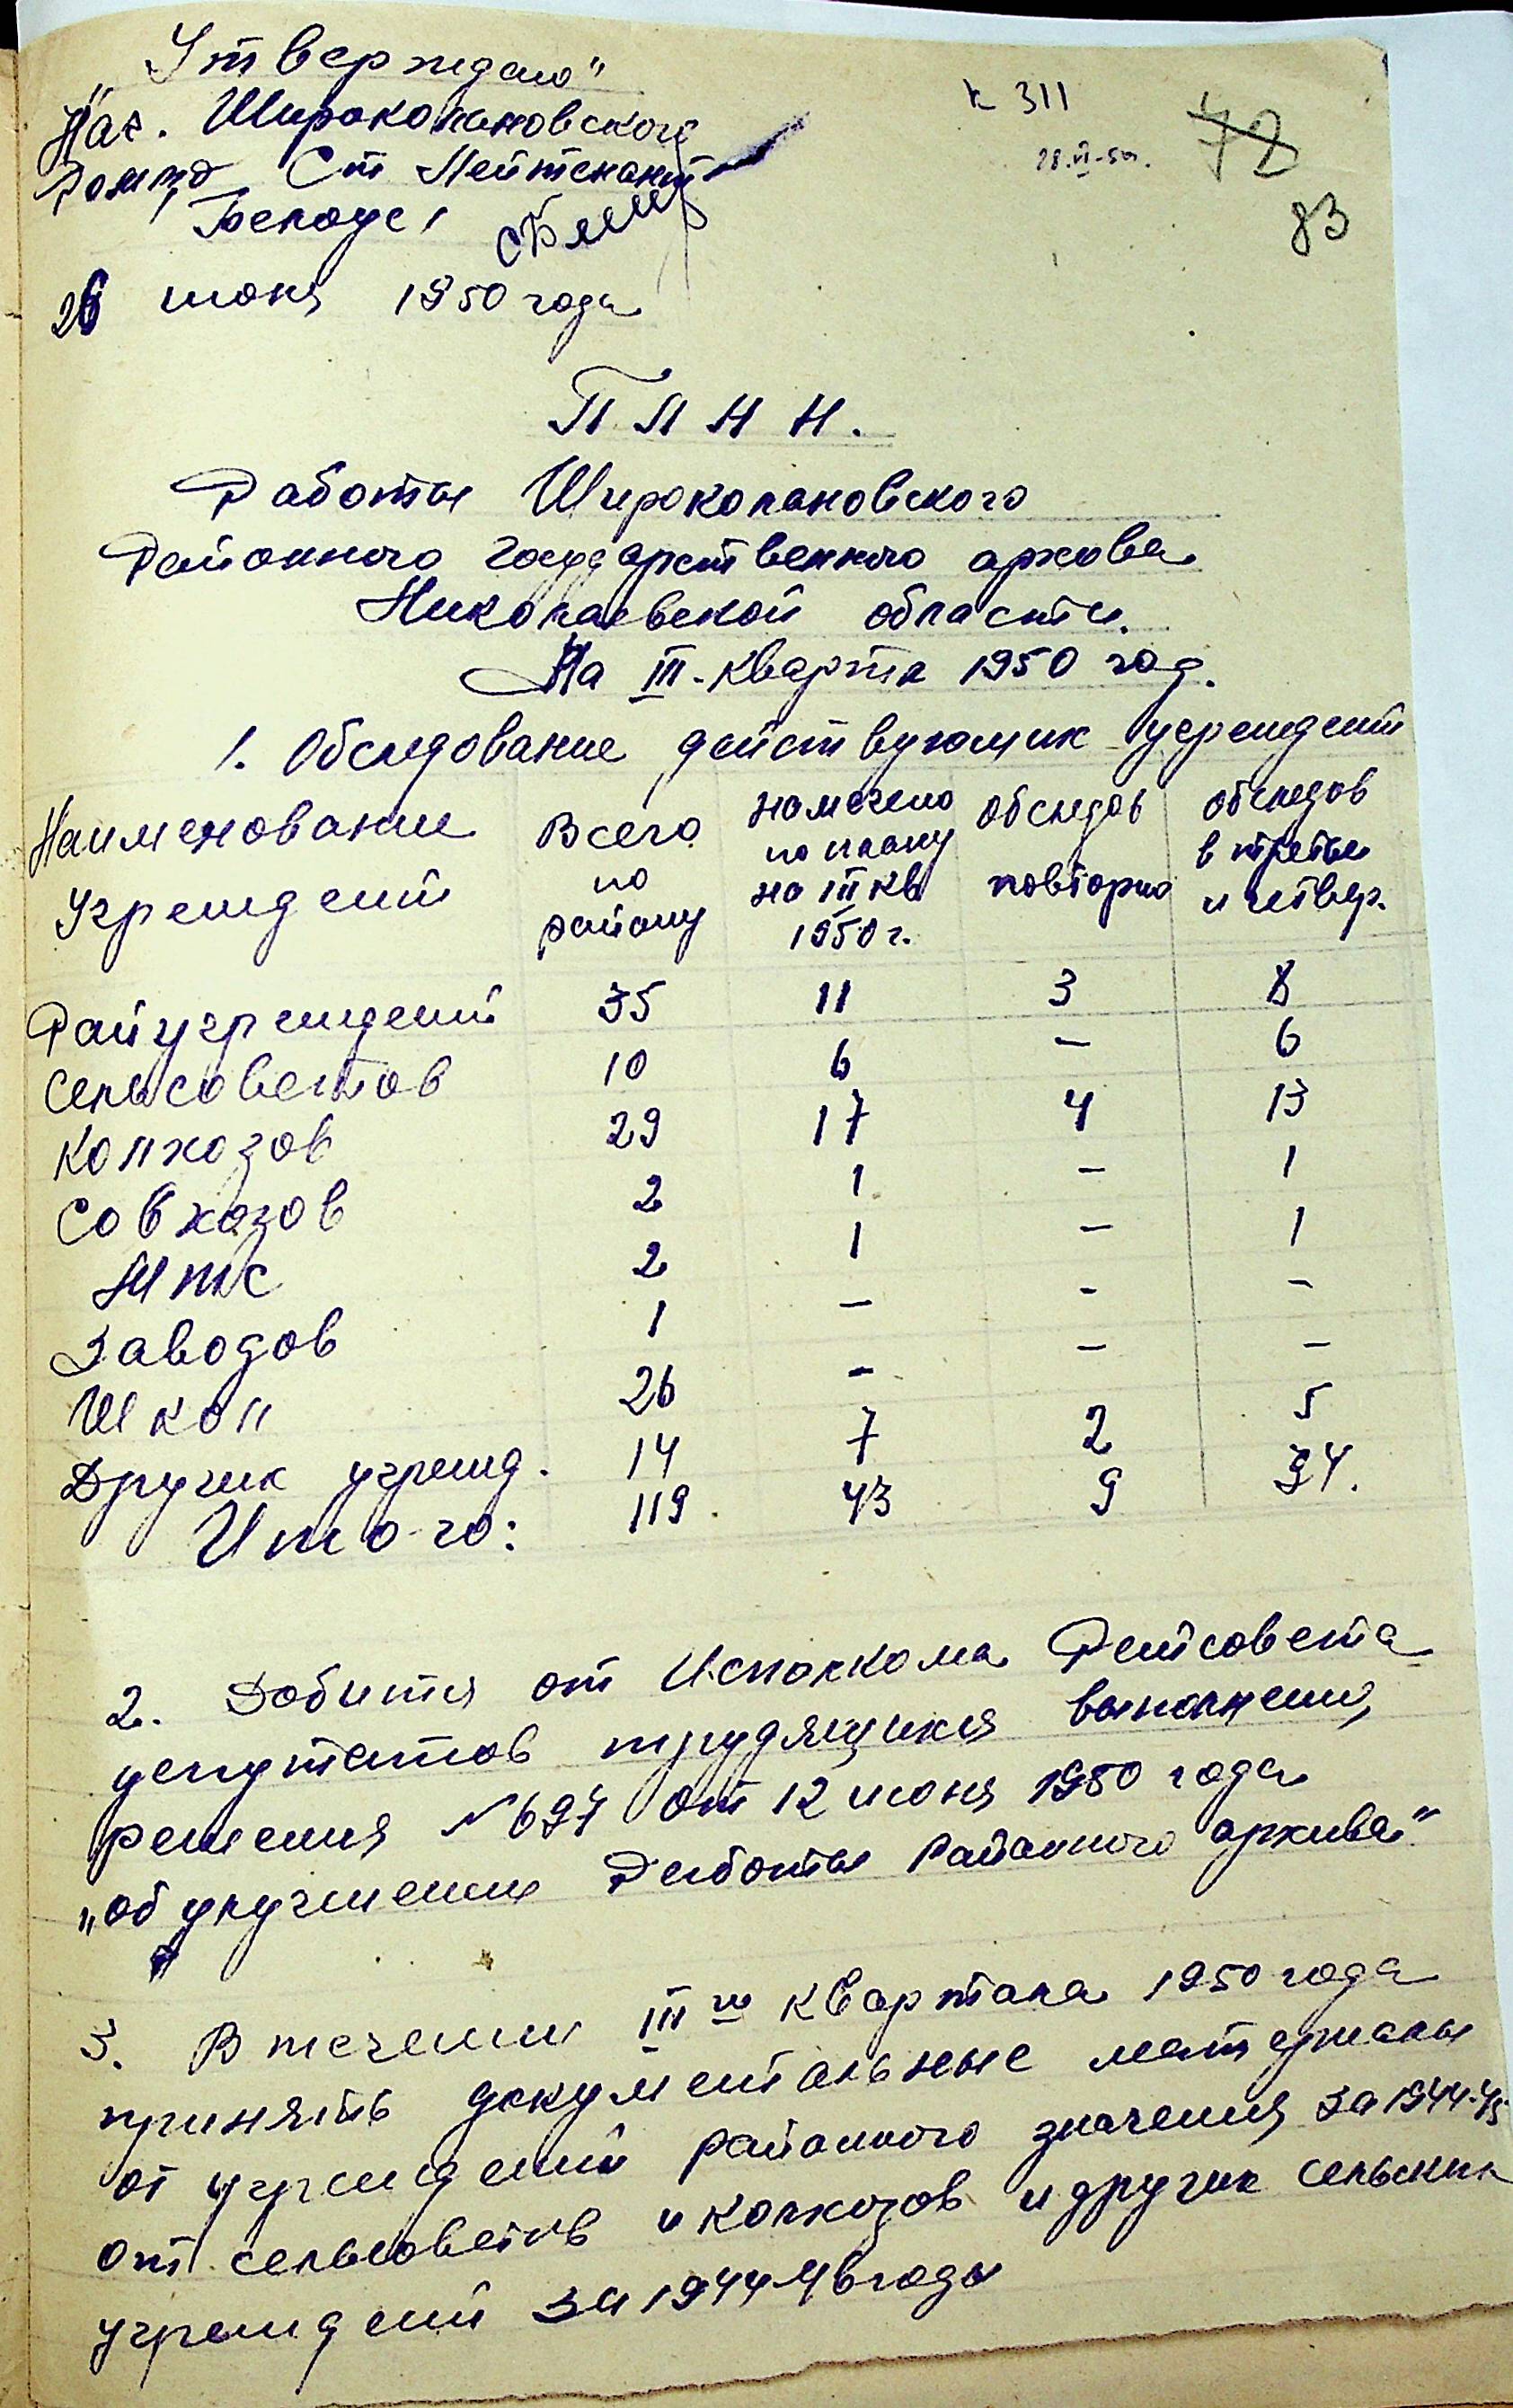 „Утверждаю"
Нач. Широколановского
РОМГБ Ст Лейтенант
Белоус
26 июня 1950 года
к 311
28.VI-50г.
72
83
ПЛАН.
Работы Широколановского
Районного государственного архива
Николаевской области.
На III-квартал 1950 год.
1. Обследование действующих учреждений
Наименование Учреждений | Всего по району | намечено по плану на III кв 1950 г. | обследов повторно | обследов в третье и четвер.
Райучреждений 35 11 3 8
Сельсоветов 10 6 – 6
Колхозов 29 17 4 13
Совхозов 2 1 – 1
МТС 2 1 – 1
Заводов 1 – – –
Школ 26 – – –
Других учрежд. 14 7 2 5
Итого: 119 43 9 34.
2. Добится от Исполкома Райсовета
депутатов трудящихся выполнения
решения №697 от 12 июня 1950 года
„об улучшении Работы Районного архива"
3. В течении III го квартала 1950 года
принять документальные материалы
от учреждений районного значения за 1944-45
от сельсоветов и колхозов и других сельских
учреждений за 1944 46 годы